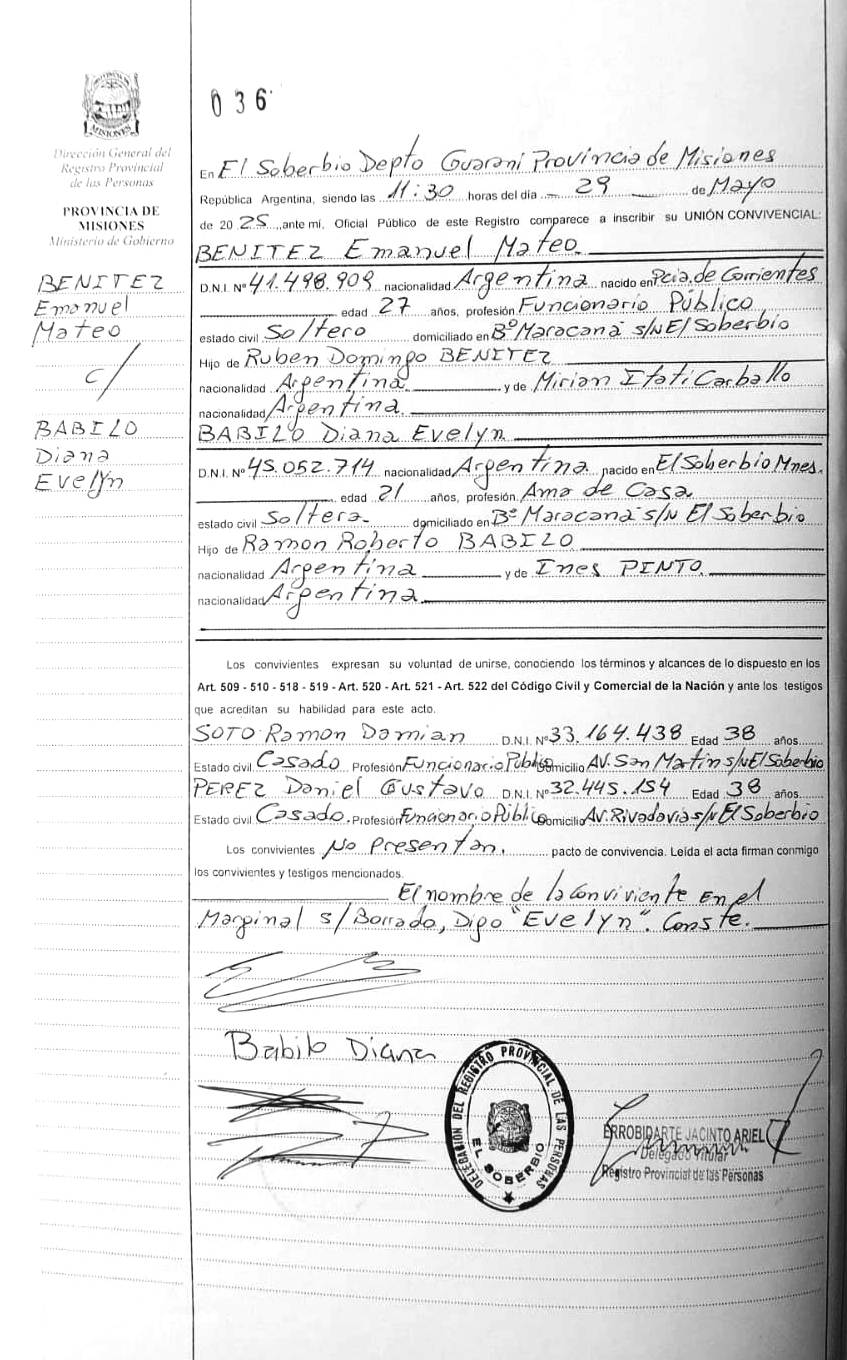 036
PROVINCIA DE
MISIONES
Dirección General del
Registro Provincial
de las Personas
PROVINCIA DE
MISIONES
Ministerio de Gobierno
BENITEZ
Emanuel
Mateo
c/
BABILO
Diana
Evelyn
En El Soberbio Depto Guarani Provincia de Misiones
República Argentina, siendo las 11:30 horas del día 29 de Mayo
de 2025, ante mí, Oficial Público de este Registro comparece a inscribir su UNIÓN CONVIVENCIAL:
BENITEZ Emanuel Mateo.
D.N.I. Nº 41.498.909 nacionalidad Argentina nacido en Pcia. de Corrientes
edad 27 años, profesión Funcionario Público
estado civil Soltero domiciliado en Bº Maracaná s/N El Soberbio
Hijo de Ruben Domingo BENITEZ
nacionalidad Argentina. y de Mirian Itati Carballo
nacionalidad Argentina.
BABILO Diana Evelyn.
D.N.I. Nº 45.052.714 nacionalidad Argentina. nacido en El Soberbio Mnes.
edad 21 años, profesión Ama de Casa.
estado civil Soltera. domiciliado en Bº Maracaná s/N El Soberbio
Hijo de Ramon Roberto BABILO
nacionalidad Argentina y de Ines PINTO.
nacionalidad Argentina.
Los convivientes expresan su voluntad de unirse, conociendo los términos y alcances de lo dispuesto en los
Art. 509 - 510 - 518 - 519 - Art. 520 - Art. 521 - Art. 522 del Código Civil y Comercial de la Nación y ante los testigos
que acreditan su habilidad para este acto.
SOTO Ramon Damian D.N.I. Nº 33.164.438 Edad 38 años
Estado civil Casado Profesión Funcionario Público Domicilio AV. San Martin s/N El Soberbio
PEREZ Daniel Gustavo D.N.I. Nº 32.445.154 Edad 38 años.
Estado civil Casado. Profesión Funcionario Público Domicilio AV. Rivadavia s/N El Soberbio
Los convivientes No Presentan. pacto de convivencia. Leída el acta firman conmigo
los convivientes y testigos mencionados.
El nombre de la Conviviente En el
Marginal s/Borrado, Digo "Evelyn". Conste.
Babilo Diana
DELEGACION DEL REGISTRO PROVINCIAL DE LAS PERSONAS
EL SOBERBIO
ERROBIDARTE JACINTO ARIEL
Delegado Titular
Registro Provincial de las Personas